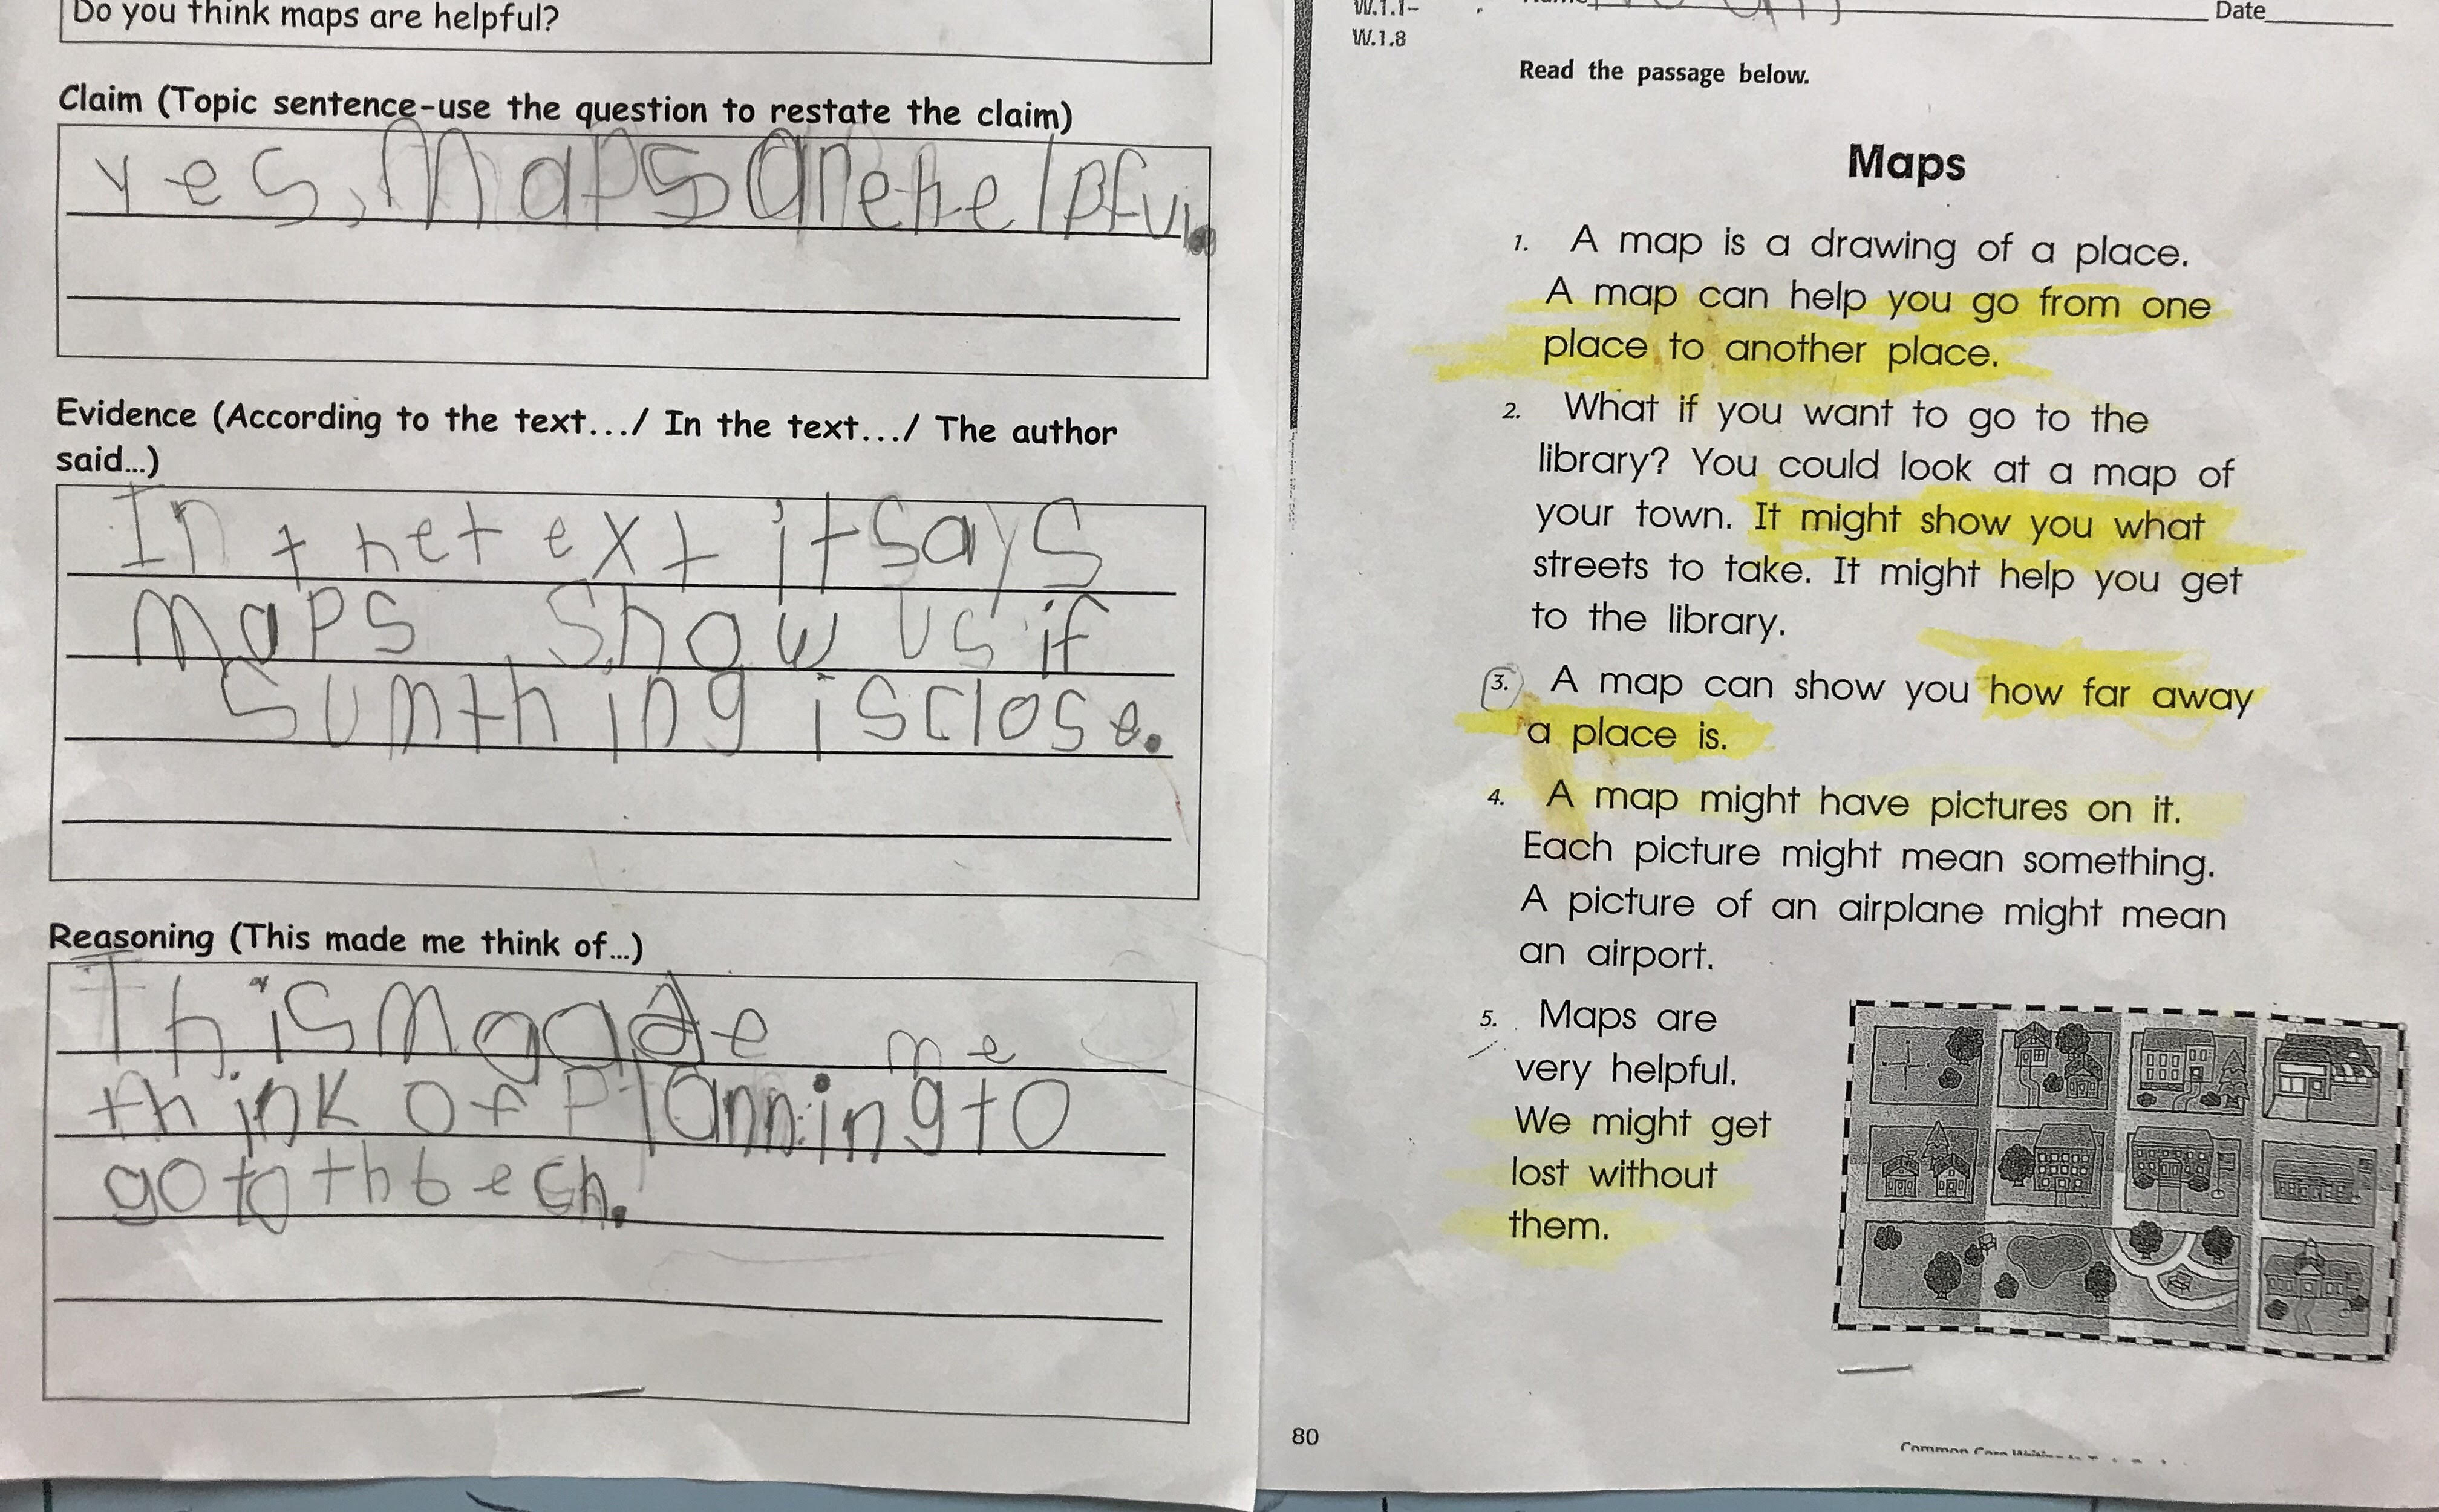 Do you think maps are helpful?
Claim (Topic sentence-use the question to restate the claim)
yes, Maps are helpful.
Evidence (According to the text.../ In the text.../ The author
said...)
In the text it says
maps show us if
sumthing is close.
Reasoning (This made me think of...)
This made me
think of Planning to
go to th bech.
W.1.1-
W.1.8
Date
Read the passage below.
Maps
1. A map is a drawing of a place.
A map can help you go from one
place to another place.
2. What if you want to go to the
library? You could look at a map of
your town. It might show you what
streets to take. It might help you get
to the library.
3. A map can show you how far away
a place is.
4. A map might have pictures on it.
Each picture might mean something.
A picture of an airplane might mean
an airport.
5. Maps are
very helpful.
We might get
lost without
them.
80
Common Core